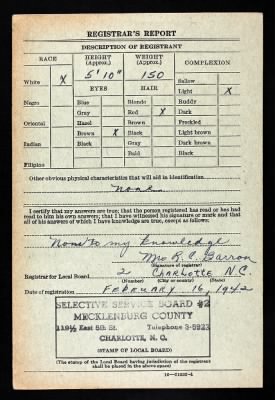 REGISTRAR'S REPORT
DESCRIPTION OF REGISTRANT
RACE HEIGHT (Approx.) WEIGHT (Approx.) COMPLEXION
5' 10" 150
White X EYES HAIR Sallow
Light X
Negro Blue Blonde Ruddy
Gray Red X Dark
Oriental Hazel Brown Freckled
Brown X Black Light brown
Indian Black Gray Dark brown
Bald Black
Filipino
Other obvious physical characteristics that will aid in identification
None
I certify that my answers are true; that the person registered has read or has had
read to him his own answers; that I have witnessed his signature or mark and that
all of his answers of which I have knowledge are true, except as follows:
None to my knowledge
Mrs R. C. Garron
(Signature of registrar)
Registrar for Local Board 2 CHARLOTTE N.C.
(Number) (City or county) (State)
Date of registration FEBRUARY 16, 1942
SELECTIVE SERVICE BOARD #2
MECKLENBURG COUNTY
119½ East 5th St. Telephone 3-5923
CHARLOTTE, N. C.
(STAMP OF LOCAL BOARD)
(The stamp of the Local Board having jurisdiction of the registrant
shall be placed in the above space)